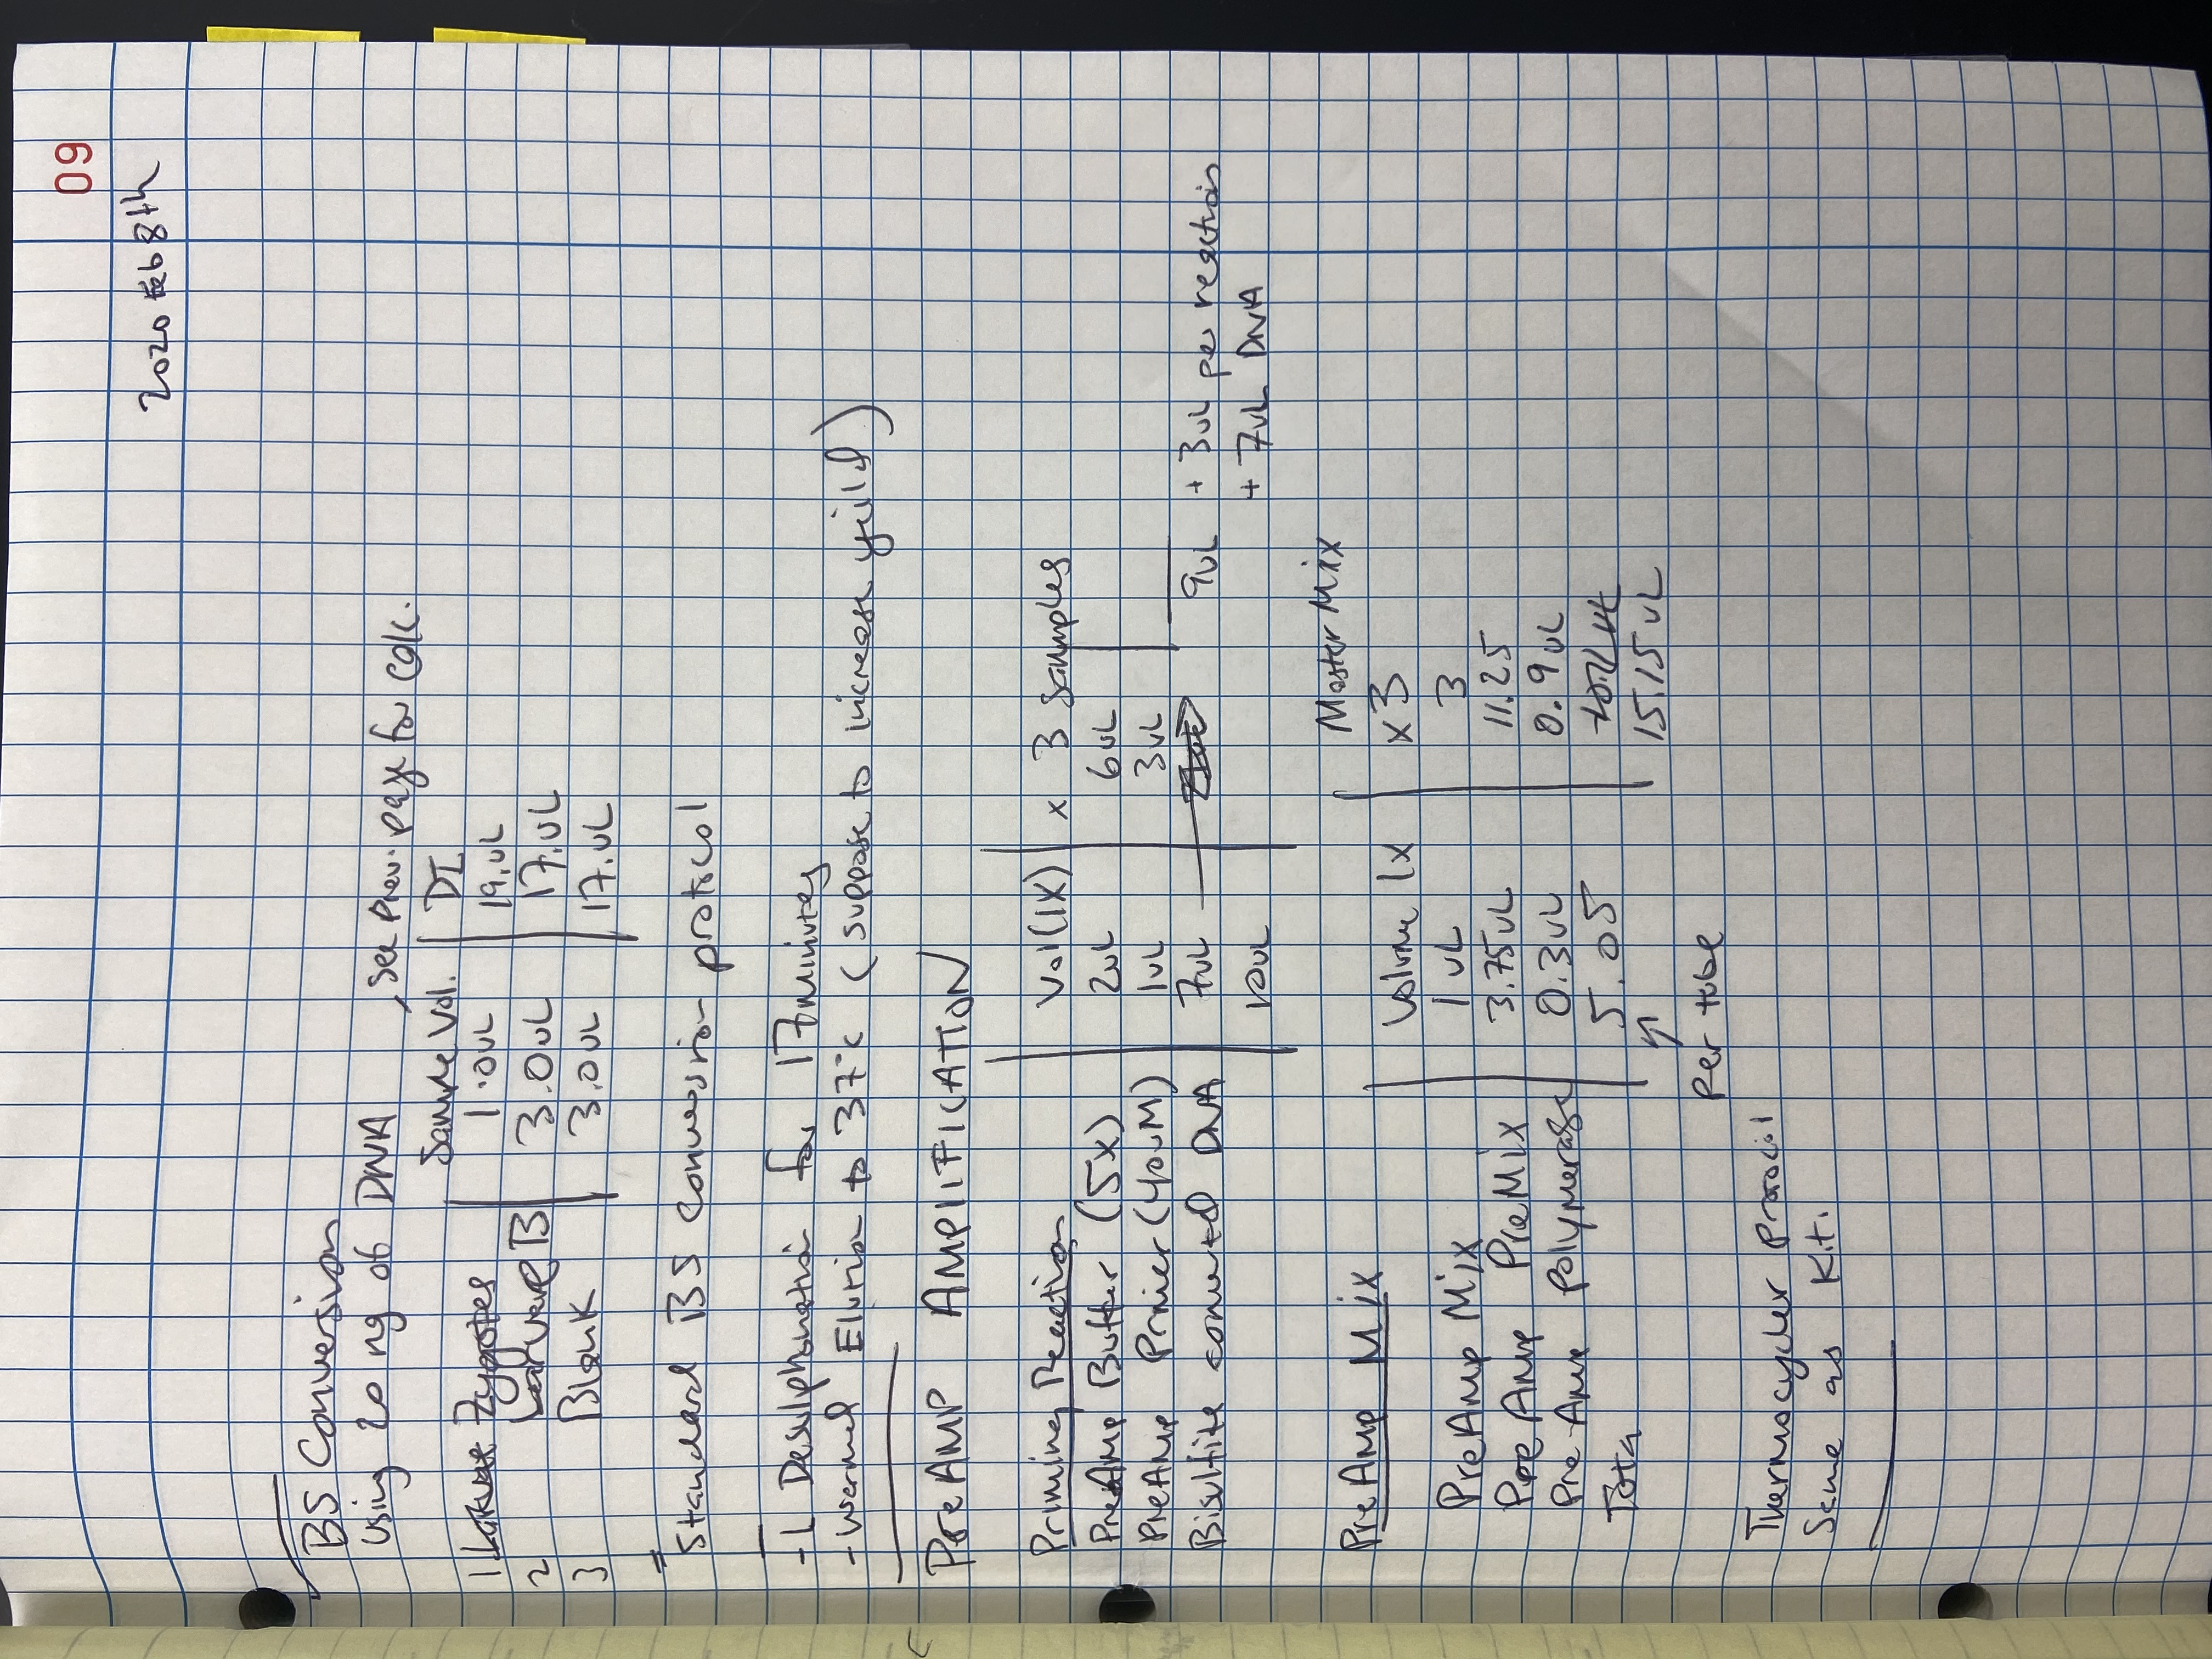 09
2020 Feb 8th
BS Conversion
Using 20 ng of DNA , See Prev. page for calc.
Sample Vol. DI
1 Larvae Zygotes 1.0uL 19.uL
2 Larvae B 3.0uL 17.uL
3 Blank 3.0uL 17.uL
Standard BS Conversion protocol
- L Desulphonation for 17 minutes
- Warmed Elution to 37°C (suppose to increase yeild)
PreAMP AMPLIFICATION
Priming Reaction Vol(1X) x 3 samples
PreAmp Buffer (5X) 2uL 6uL
PreAmp Primer (40uM) 1uL 3uL
Bisulfite converted DNA 7uL 9uL + 3uL per reaction
10uL + 7uL DNA
Master Mix
PreAmp Mix
Volume 1x x3
PreAmp Mix 1 uL 3
Pre Amp PreMix 3.75uL 11.25
Pre-Amp Polymerase 0.3uL 0.9uL
Tota 5.05
15.15 uL
Per tube
Thermocycler Protocol
Same as Kit.